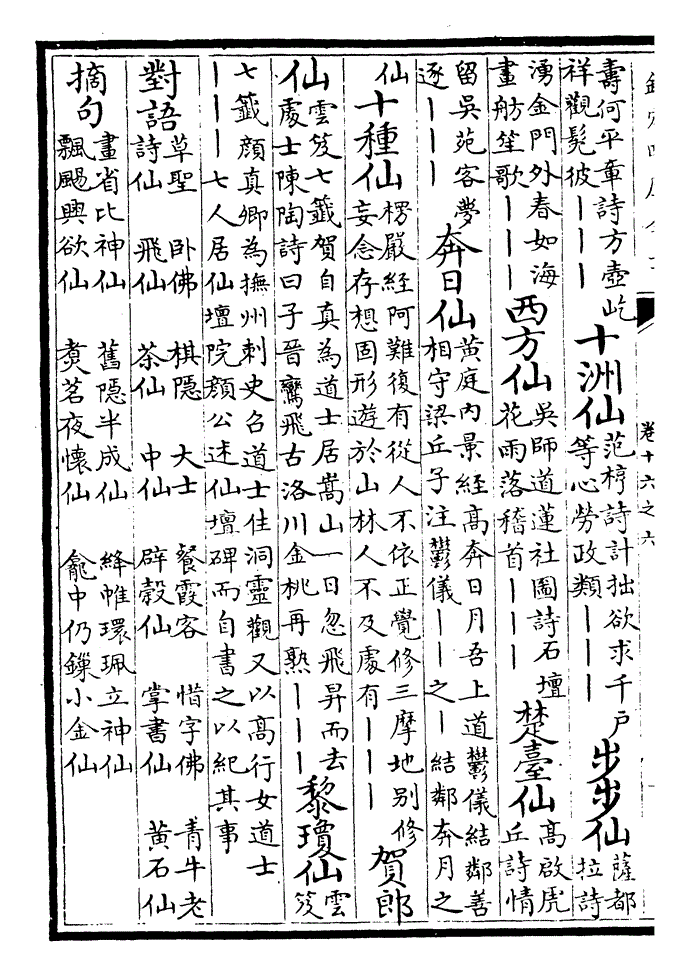 壽何平章詩方壺屹祥觀髡彼｜｜｜十洲仙范梈詩計拙欲求千戶等心勞政類｜｜｜步步仙薩都拉詩
湧金門外春如海畫舫笙歌｜｜｜西方仙吳師道蓮社圖詩石壇花雨落稽首｜｜｜楚臺仙高啟虎丘詩情
留吳苑客夢逐｜｜｜奔日仙黃庭內景經高奔日月吾上道鬱儀結鄰善相守梁丘子注鬱儀｜｜之｜結鄰奔月之
仙十種仙楞嚴經阿難復有從人不依正覺修三摩地别修妄念存想固形遊於山林人不及處有｜｜｜賀郎
仙雲笈七籤賀自真為道士居嵩山一日忽飛昇而去處士陳陶詩曰子晉鸞飛古洛川金桃再熟｜｜｜黎瓊仙雲笈
七籤顔真卿為撫州刺史召道士住洞靈觀又以高行女道士｜｜｜七人居仙壇院顔公述仙壇碑而自書之以紀其事
對語 草聖 詩仙 卧佛 飛仙 棋隱 茶仙 大士 中仙 餐霞客 辟穀仙 惜字佛 掌書仙 青牛老 黃石仙
摘句 畫省比神仙 飄颺興欲仙 舊隱半成仙 煑茗夜懷仙 絳帷環珮立神仙 龕中仍鏁小金仙
卷十六之六